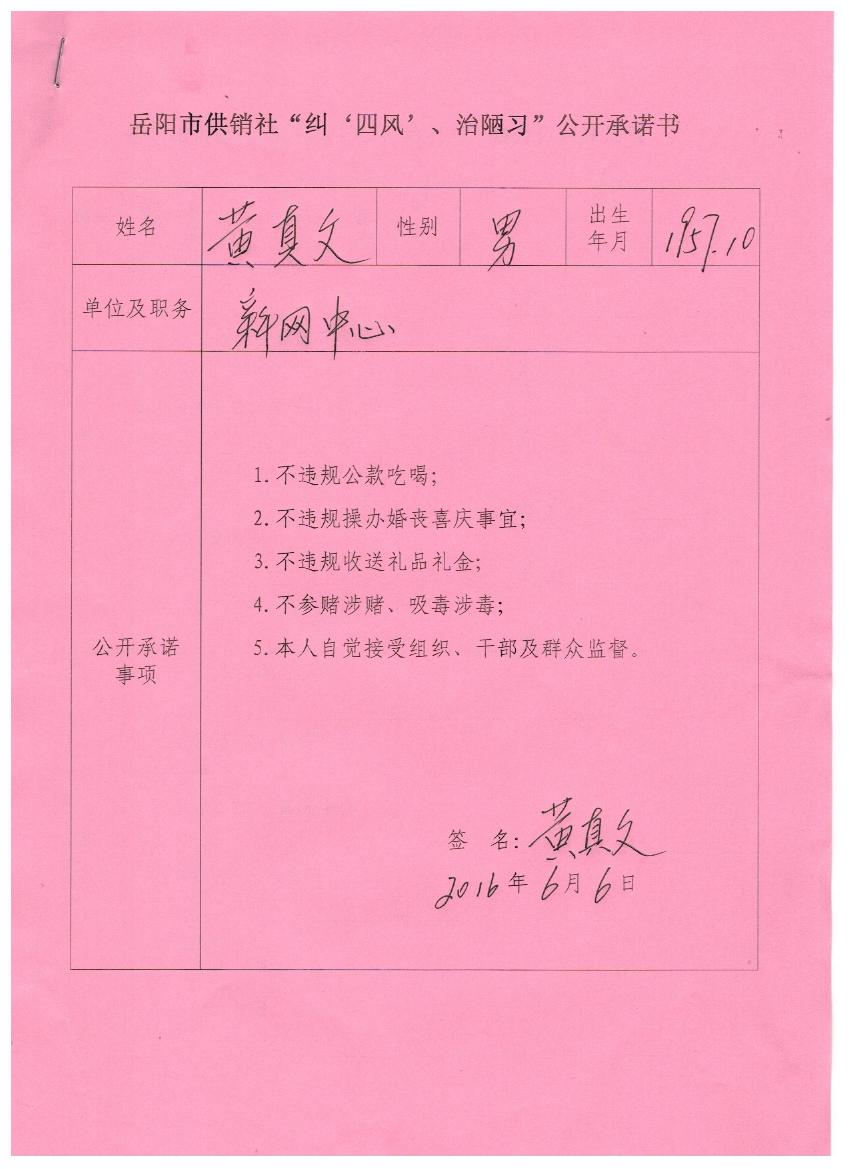 岳阳市供销社“纠‘四风’、治陋习”公开承诺书
姓名 黄真文 性别 男 出生年月 1957.10
单位及职务 新网中心
公开承诺事项
1.不违规公款吃喝;
2.不违规操办婚丧喜庆事宜;
3.不违规收送礼品礼金;
4.不参赌涉赌、吸毒涉毒;
5.本人自觉接受组织、干部及群众监督。
签 名:黄真文
2016年6月6日